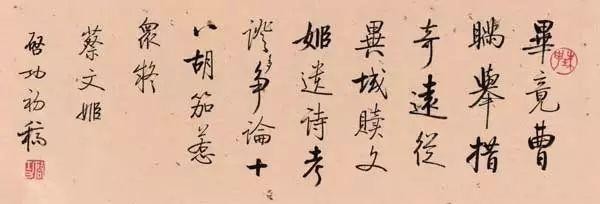 畢竟曹
瞞舉措
奇遠從
異域贖文
姬遺詩考
證爭論十
八胡笳惹
眾疑
蔡文姬
啟功初稿